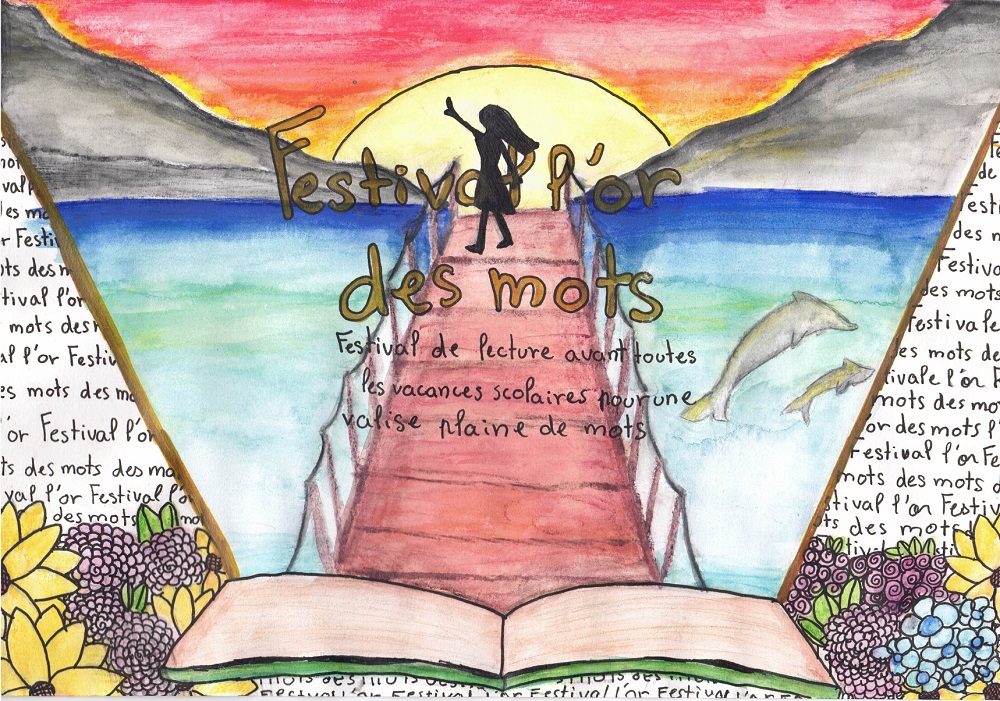 Festival l'or
des mots
Festival de lecture avant toutes
les vacances scolaires pour une
valise plaine de mots
val
es mo
r Festi
ts des m
tival l'or
mots des m
al l'or Festiv
es mots des mo
'or Festival l'or
ts des mots des mo
val l'or Festival l'o
des mots mo
de
Festi
des m
Festiva
des mots
Festivale
es mots de
tivale l'or F
mots des mo
or des mots l'
Festival l'or Fe
mots des mots d
stival l'or Festiv
ts des mots
Festival l'or Festival l'or Festival l'or Festival l'or